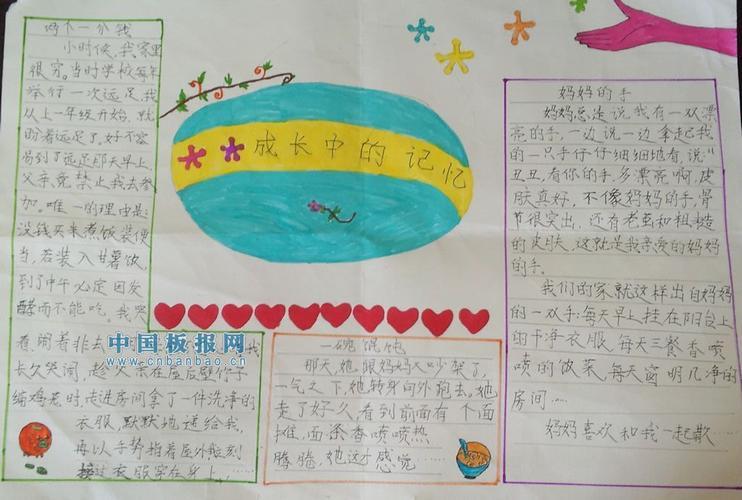 两个一分钱
小时候,我家里
很穷。当时学校每年
举行一次远足,我
从上一年级开始,就
盼着远足了,好不容
易到了远足那天早上,
父亲竟禁止我去参
加。唯一的理由是:
没钱买米煮饭装便
当,若装入甘薯饭,
到了中午必定因发
酵而不能吃。我哭
着闹着非去
长久哭闹,
编鸡卷时,走进房间拿了一件洗净的
衣服,默默地递给我,
再以手势指着屋外
衣服穿在身上,
成长中的记忆
中国板报网
www.cnbanbao.cn
一碗馄饨
那天,她跟妈妈又吵架了,
一气之下,她转身向外跑去。她
走了好久,看到前面有个面
摊,面条香喷喷热
腾腾,她这才感觉
妈妈的手
妈妈总是说我有一双漂
亮的手,一边说一边拿起我
的一只手仔仔细细地看,说"
丑丑,看你的手,多漂亮啊,皮
肤真好,不像妈妈的手,骨
节很突出,还有老茧和粗糙
的皮肤,这就是我亲爱的妈妈
的手。
我们的家就这样出自妈妈
的一双手:每天早上挂在阳台上
的干净衣服,每天三餐香喷
喷的饭菜,每天窗明几净的
房间……
妈妈喜欢和我一起散……